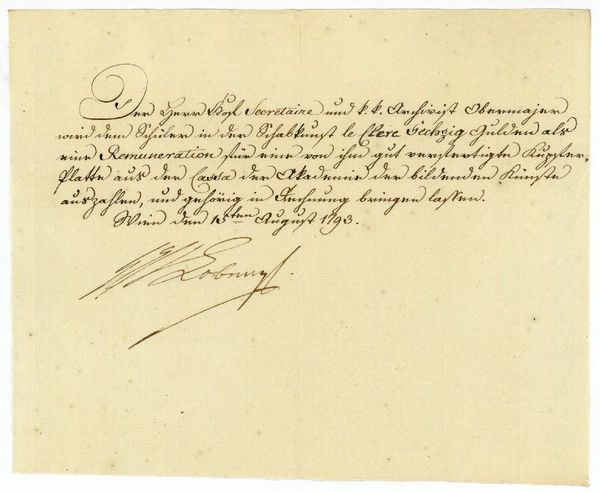 Der Herr Hof Secretaire und k. k. Archivist Obermajer
wird dem Schüler in der Schabkunst le sechzig Gulden als
eine Remuneration für eine von ihm gut verfertigte Kupfer-
Platte aus der Cassa der Akademie der bildenden Künste
auszahlen, und gehörig in Rechnung bringen lassen.
Wien den 13ten August 1793.